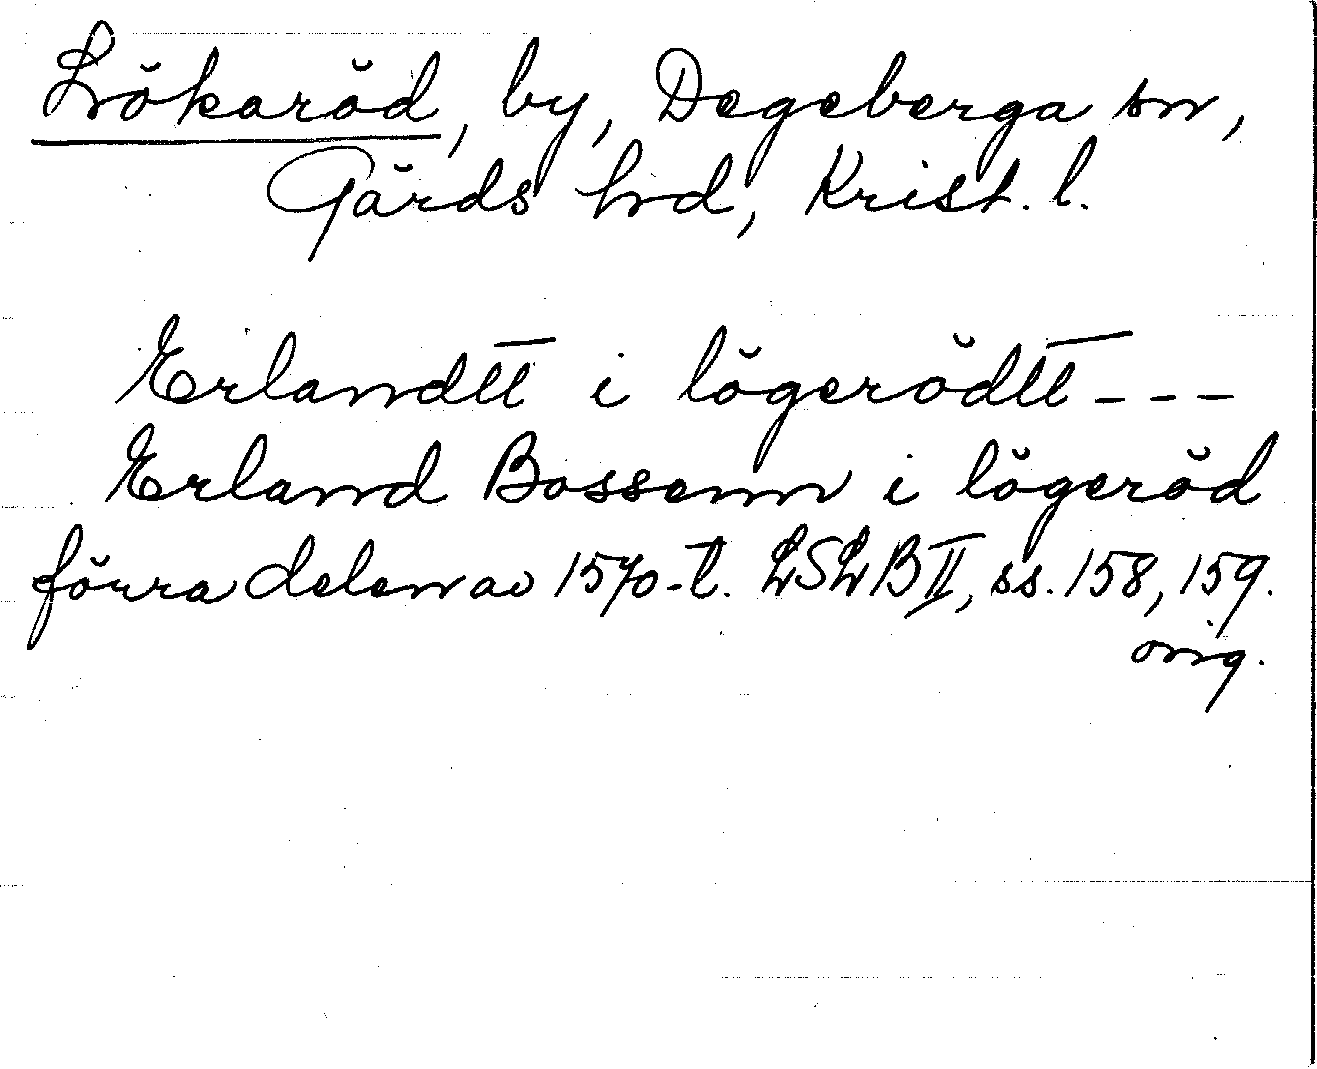 Lökaröd, by, Degeberga sn,
Gärds hd, Krist. l.
Erlandtt i lögerödtt - - -
Erland Bossenn i lögeröd
förra delen av 1570-t. LSLB II, ss. 158, 159.
orig.